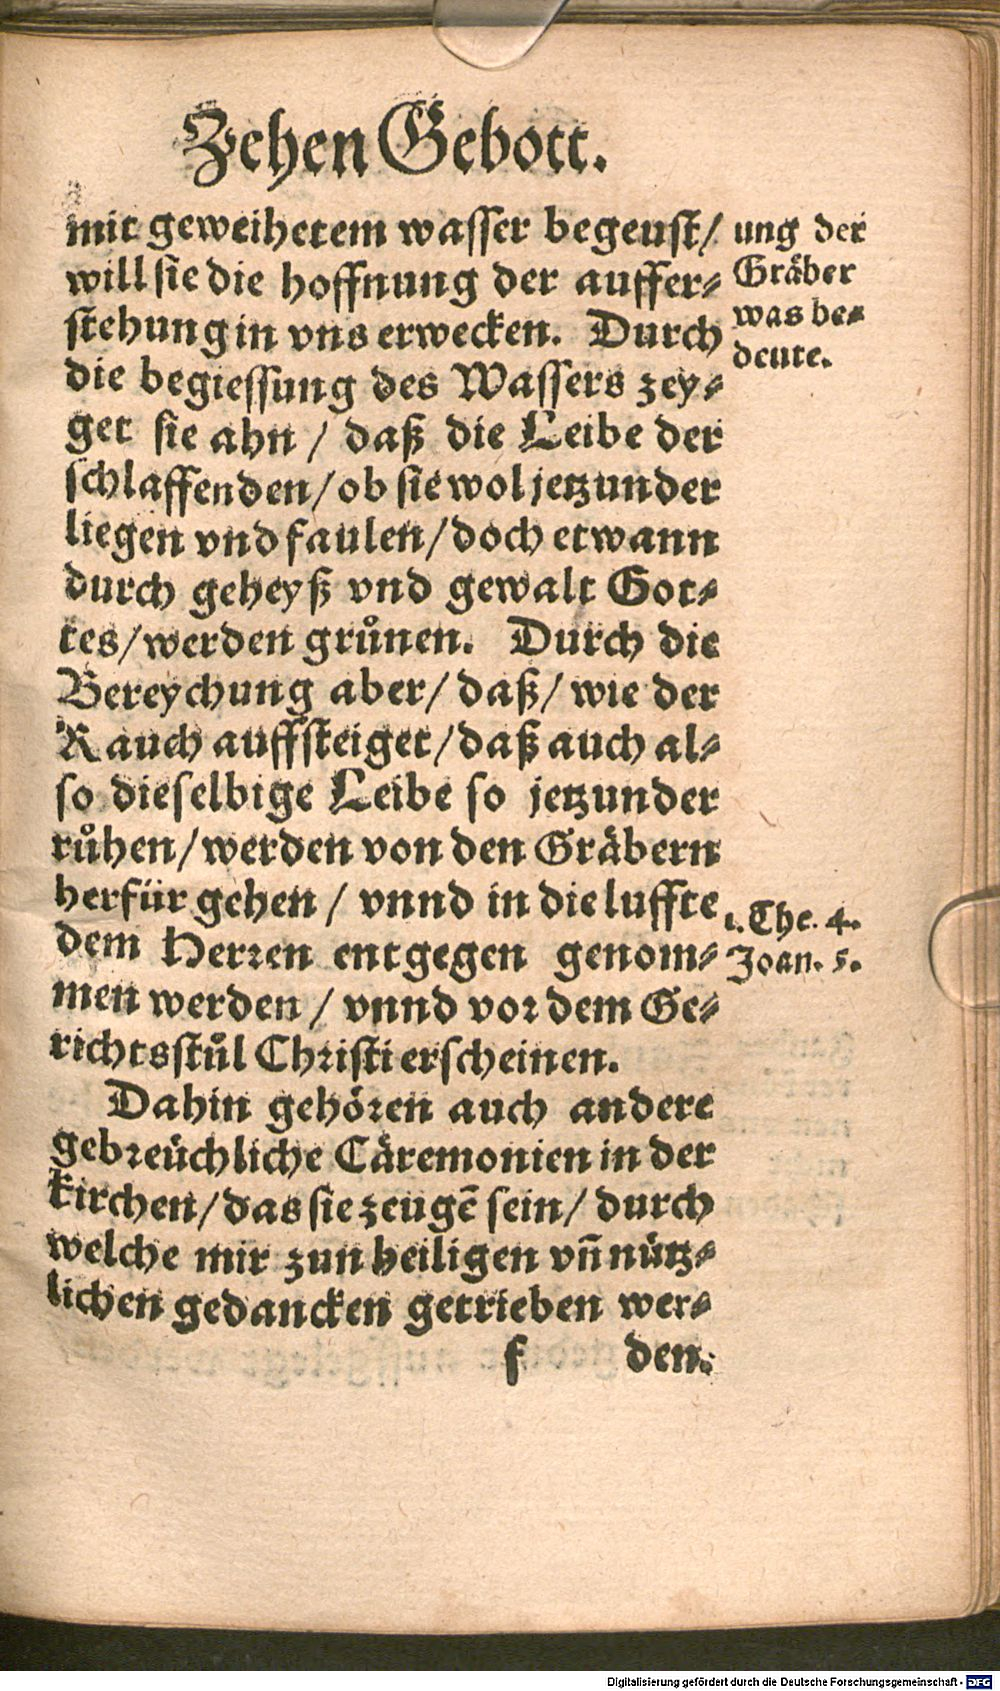 Zehen Gebott.
mit geweihetem wasser begeust/
will sie die hoffnung der auffer-
stehung in vns erwecken. Durch
die begiessung des Wassers zey-
get sie ahn / daß die Leibe der
schlaffenden/ ob sie wol jetzunder
liegen vnd faulen/ doch etwann
durch geheyß vnd gewalt Got-
tes/ werden grůnen. Durch die
Bereychung aber/ daß/ wie der
Rauch auffsteiget/ daß auch al-
so dieselbige Leibe so jetzunder
růhen/ werden von den Gräbern
herfür gehen / vnnd in die luffte
dem Herren entgegen genom-
men werden / vnnd vor dem Ge-
richtsstůl Christi erscheinen.
Dahin gehören auch andere
gebreüchliche Cäremonien in der
kirchen/ das sie zeugē sein/ durch
welche mir zun heiligen vñ nütz-
lichen gedancken getrieben wer-
f den.
ung der
Gräber
was be-
deute.
1. The. 4.
Joan. 5.
Digitalisierung gefördert durch die Deutsche Forschungsgemeinschaft - DFG